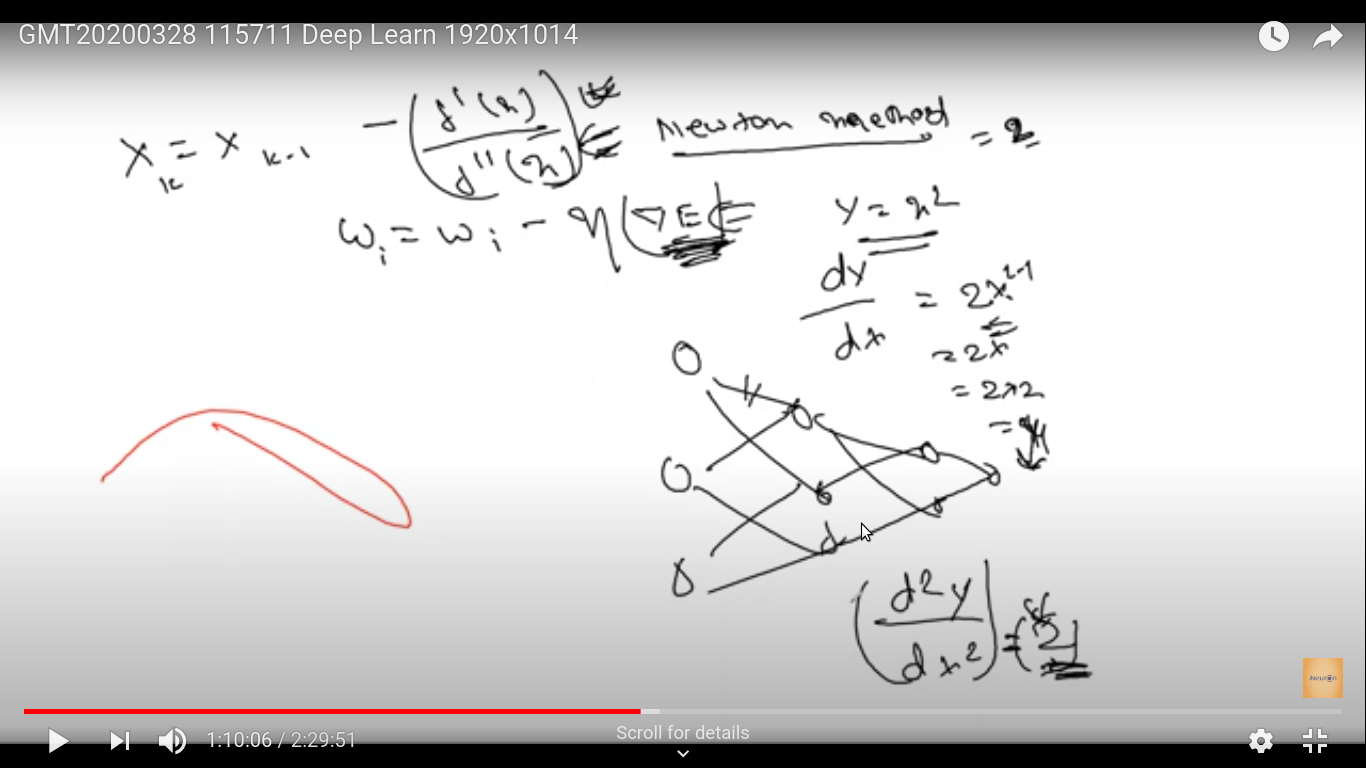 GMT20200328 115711 Deep Learn 1920x1014
x_k = x_{k-1} - (f'(x) / f''(x)) Newton method = 2
w_i = w_i - η(∇E)
y = x²
dy/dx = 2x^{2-1}
= 2x
= 2×2
= 4
(d²y/dx²) = (2)
iNeuron
1:10:06 / 2:29:51
Scroll for details